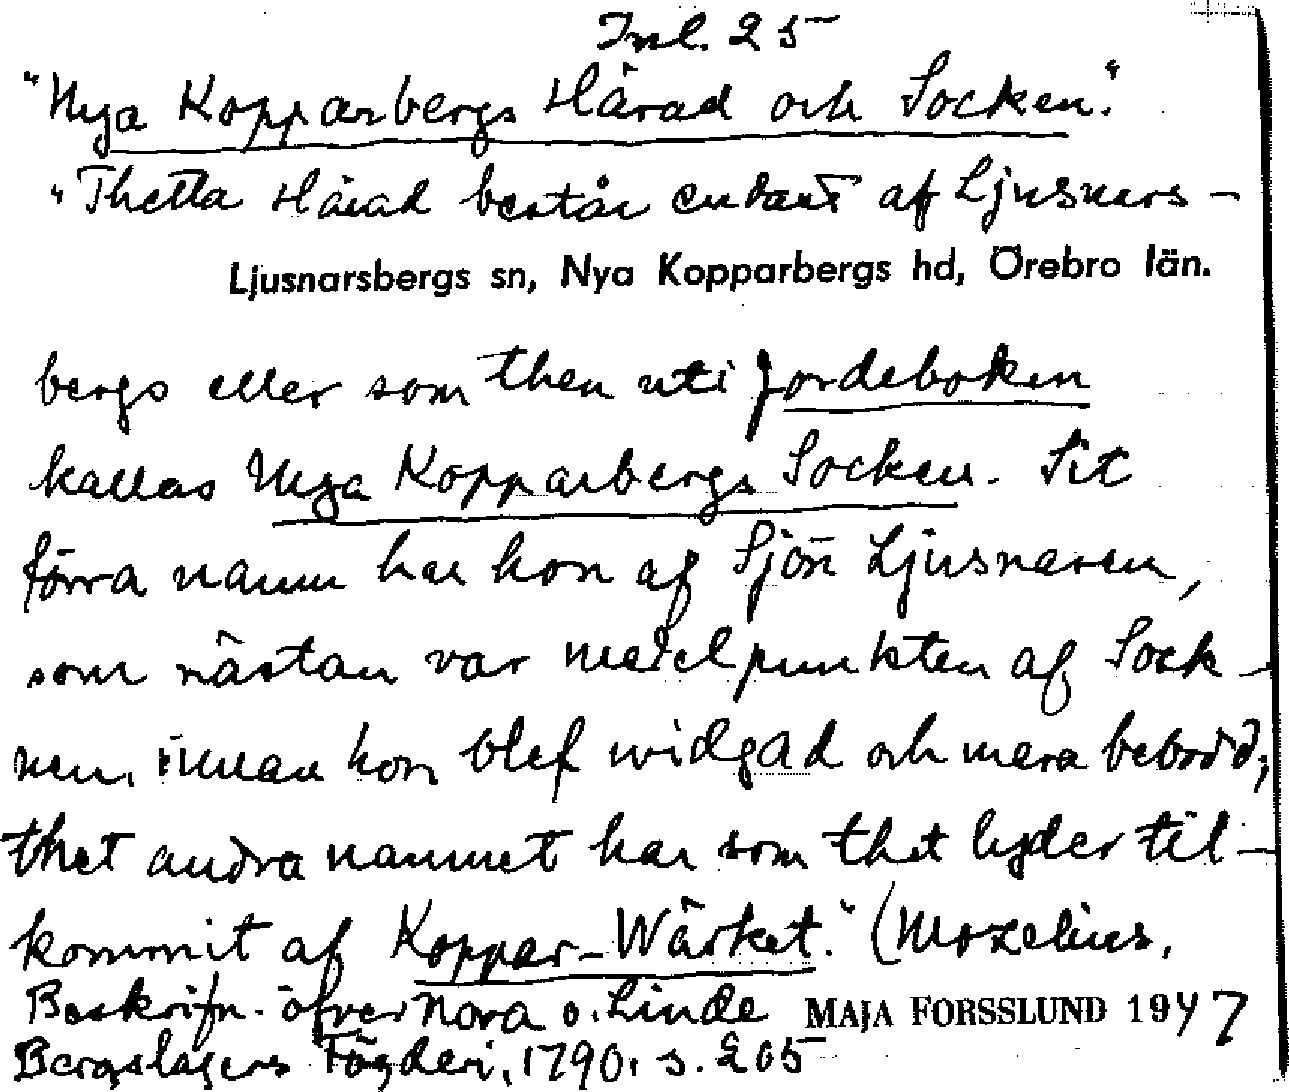 Inl. 25
"Nya Kopparbergs Härad och Socken."
"Thetta Härad består endast af Ljusners-
Ljusnarsbergs sn, Nya Kopparbergs hd, Örebro län.
bergs eller som then uti Jordeboken
kallas Nya Kopparbergs Socken. Sit
förra namn har hon af Sjön Ljusnaren,
som nästan var medelpunkten af Sock-
nen, innan hon blef widgad och mera bebodd;
thet andra namnet har som thet lyder til-
kommit af Koppar-Wärket." (Mozelius,
Beskrifn. öfver Nora o. Linde MAJA FORSSLUND 1947
Bergslagers Fögderi, 1790, s. 205